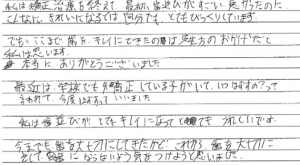 私は矯正治療を終えて 最初、歯並びがすごい悪かったのに
こんなに、きれいになるとは 自分でも、とてもびっくりしています。
でもここまで歯が、キレイにできたのは先生方のおかげだと
私は思います。
本当にありがとうございました
最近は、学校でも矯正している子がいて、いつはずすの?って
言われて、今度はずすって いいました
私は歯並びが とてもキレイになって とてもうれしいです。
今までも歯を大切にしてきたけど これからも歯を大切に
そして虫歯にならないよう気をつけようと思いました。